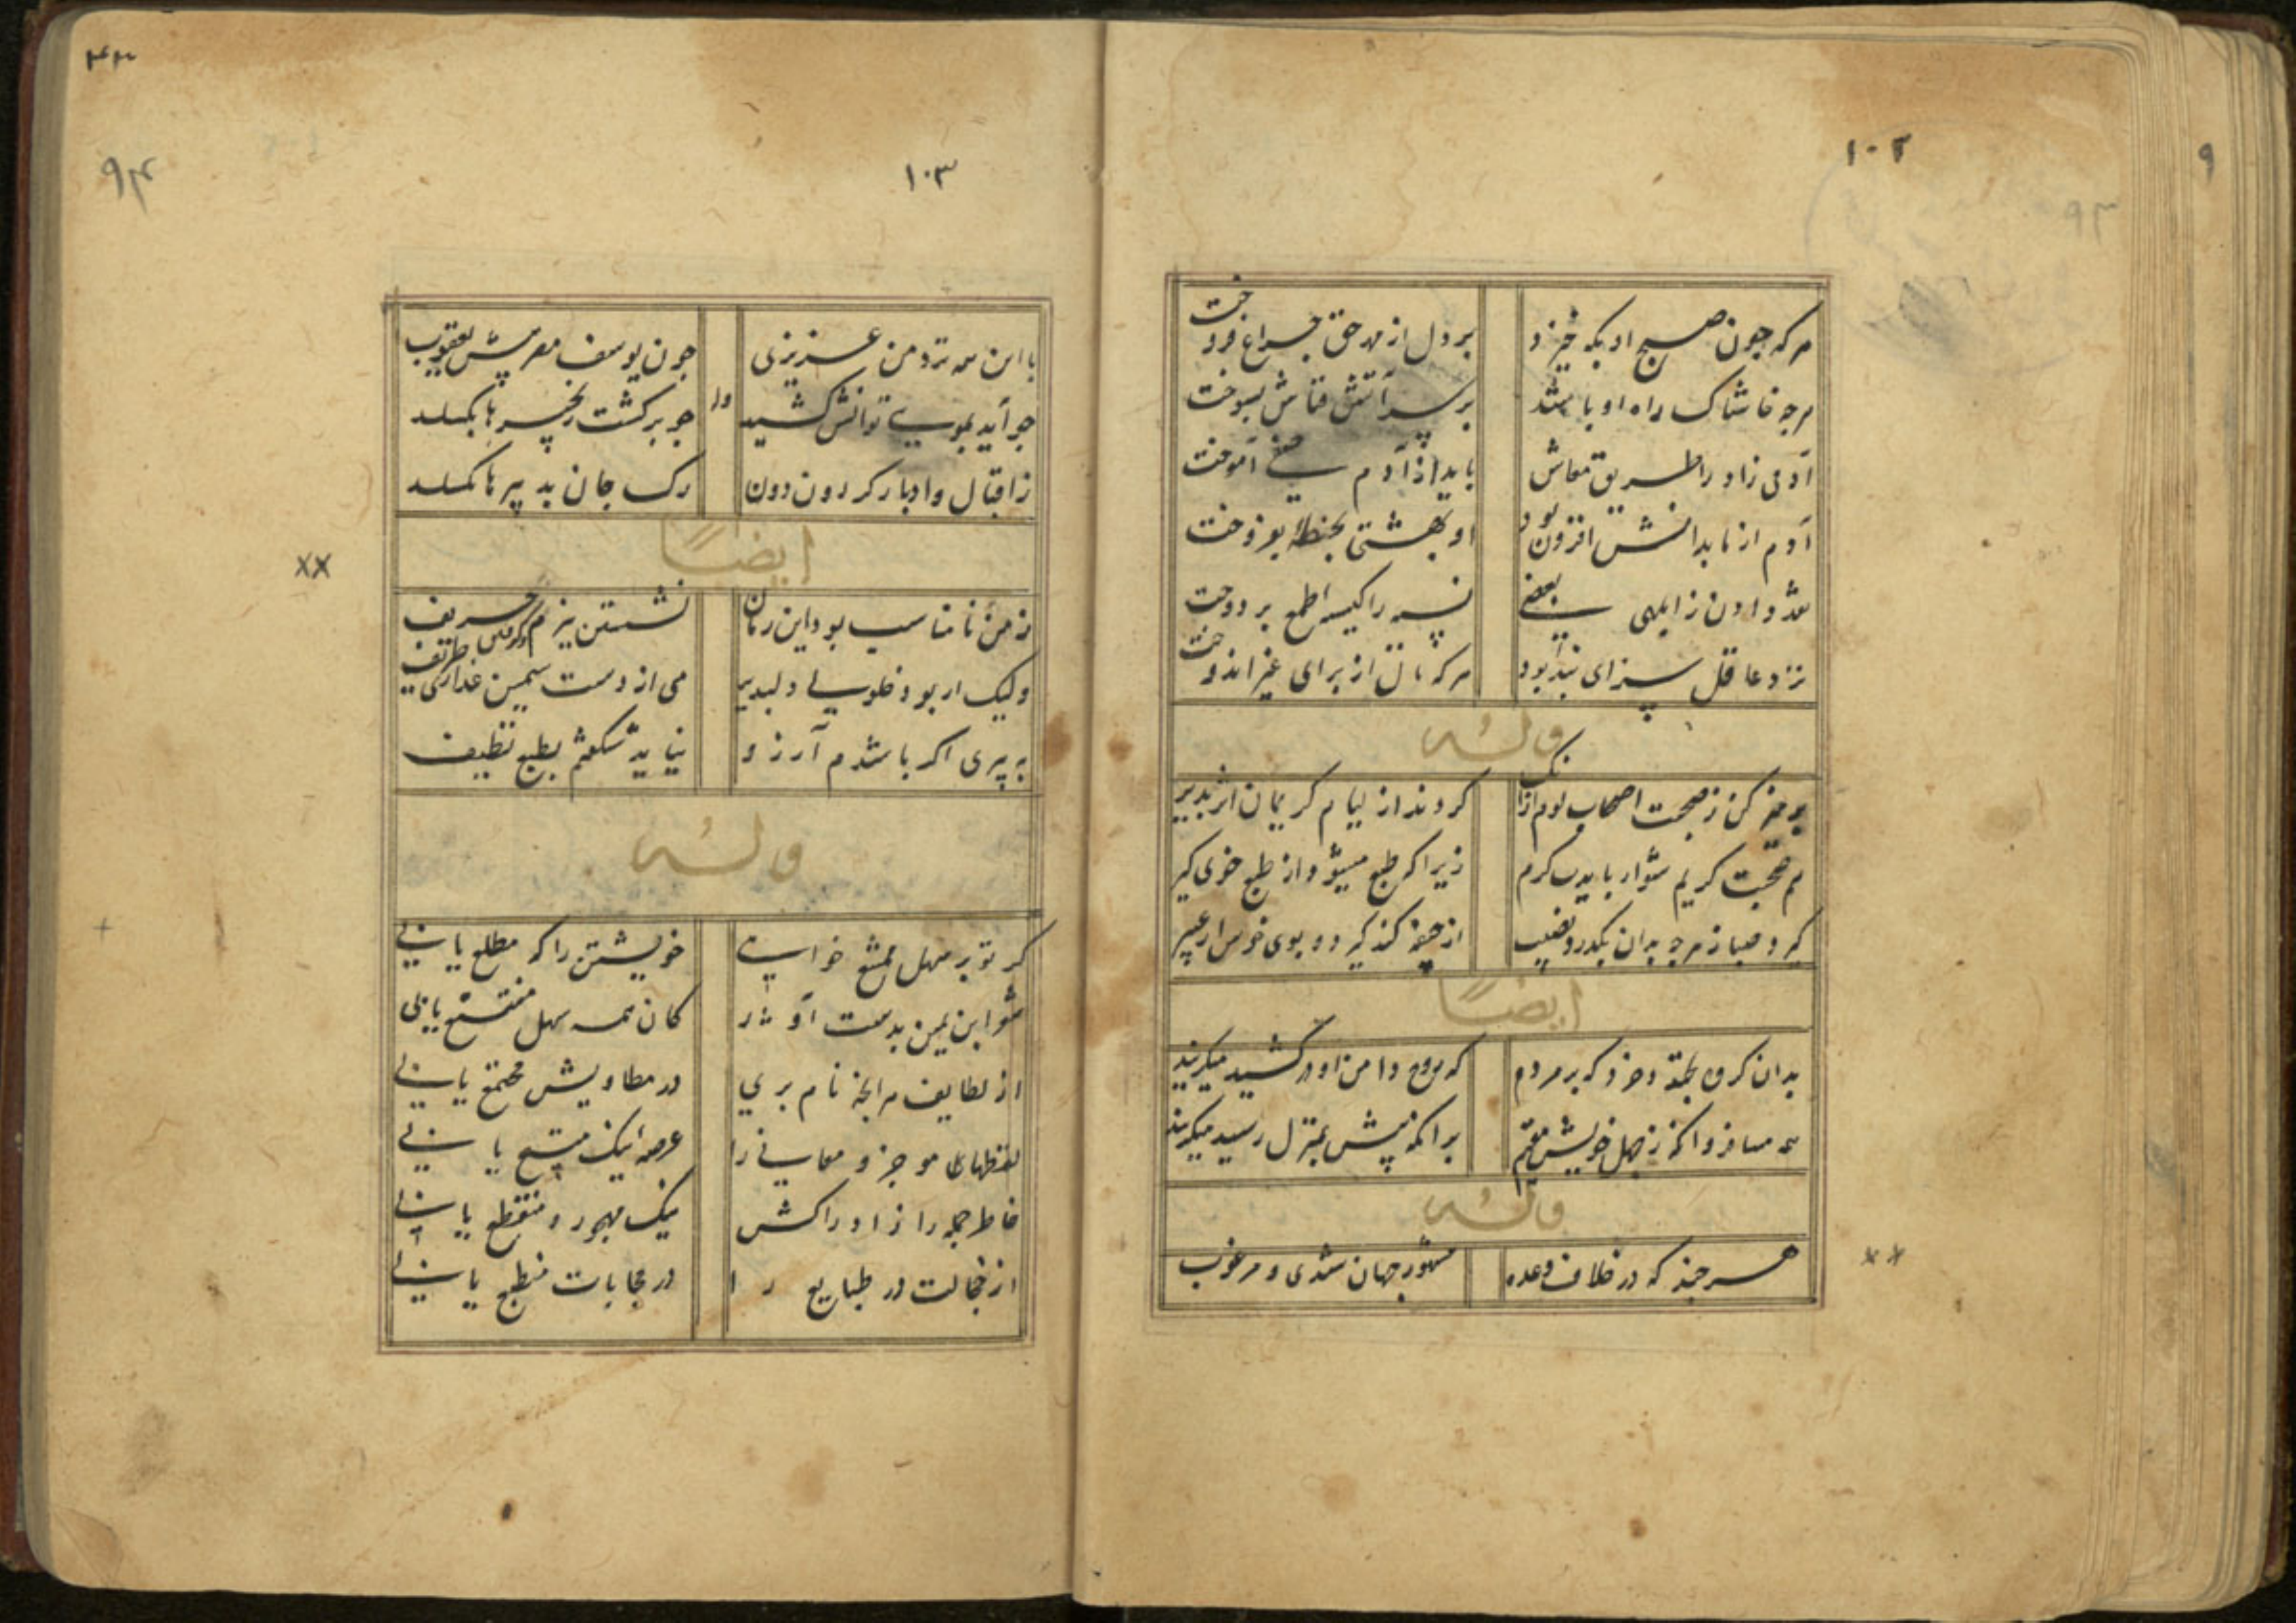 ۱۰۲
هرکه چون صبح او پکه خیزد
بر دل از مهر حق چراغ فروخت
هرچه خاشاک راه او باشد
بر سر آتش قناش بسوخت
آدمی زاد را طریق معاش
باید از آدم صفی آموخت
آدم از ما بدانش افزون بود
او بهشتی بحنطهٔ بفروخت
نقد دادن ز ابلهی بعضی
نسیه را کیسه طمع بر دوخت
نزد عاقل سزای پند بود
هرکه مال از برای غیر اندوخت
وله
پرهیز کن ز صحبت اصحاب لوم ازانک
گردند از لیام کریمان اثر پذیر
هم صحبت کریم شو ار بایدت کرم
زیرا که طبع میشود از طبع خوی گیر
گیرد صبا ز هرچه بدان بگذرد نصیب
از جیفه گند گیرد و بوی خوش از عبیر
ایضا
بدان گروه بخندد خرد که بر مردم
که روح دامن ازو در کشید میگریند
همه مسافر و آنگه ز جهل خویش مقیم
بر آنکه پیش بمنزل رسید میگریند
وله
هرچند که در خلاف وعده
مشهور جهان شدی و مرغوب
۱۰۳
با این همه نزد من عزیزی
چون یوسف مصر پیش یعقوب
وله
چو آید بمویی توانش کشید
چو برگشت زنجیرها بگسلد
ز اقبال و ادبار گردون دون
رگ جان بدبیرها بگسلد
ایضا
ز من نامناسب بود این زمان
نشستن ببزم حریف
ولیک ار بود خلوتی دلپذیر
می از دست سیمین عذاری ظریف
به پیری اگر باشدم آرزو
نیاید شگفتم بطبع نظیف
وله
گر تو بر سهل ممتنع خواهی
خویشتن را که مطلع یابی
شو ابن یمین بدست آور
کان همه سهل ممتنع یابی
از لطایف هر آنچه نام بری
در مطاویش مجتمع یابی
لفظهای موجز و معانی را
عرصهٔ نیک متسع یابی
خاطر جمله را ز ادراکش
نیک مهجور و منقطع یابی
از خجالت در طبایع را
در حجابات منطبع یابی